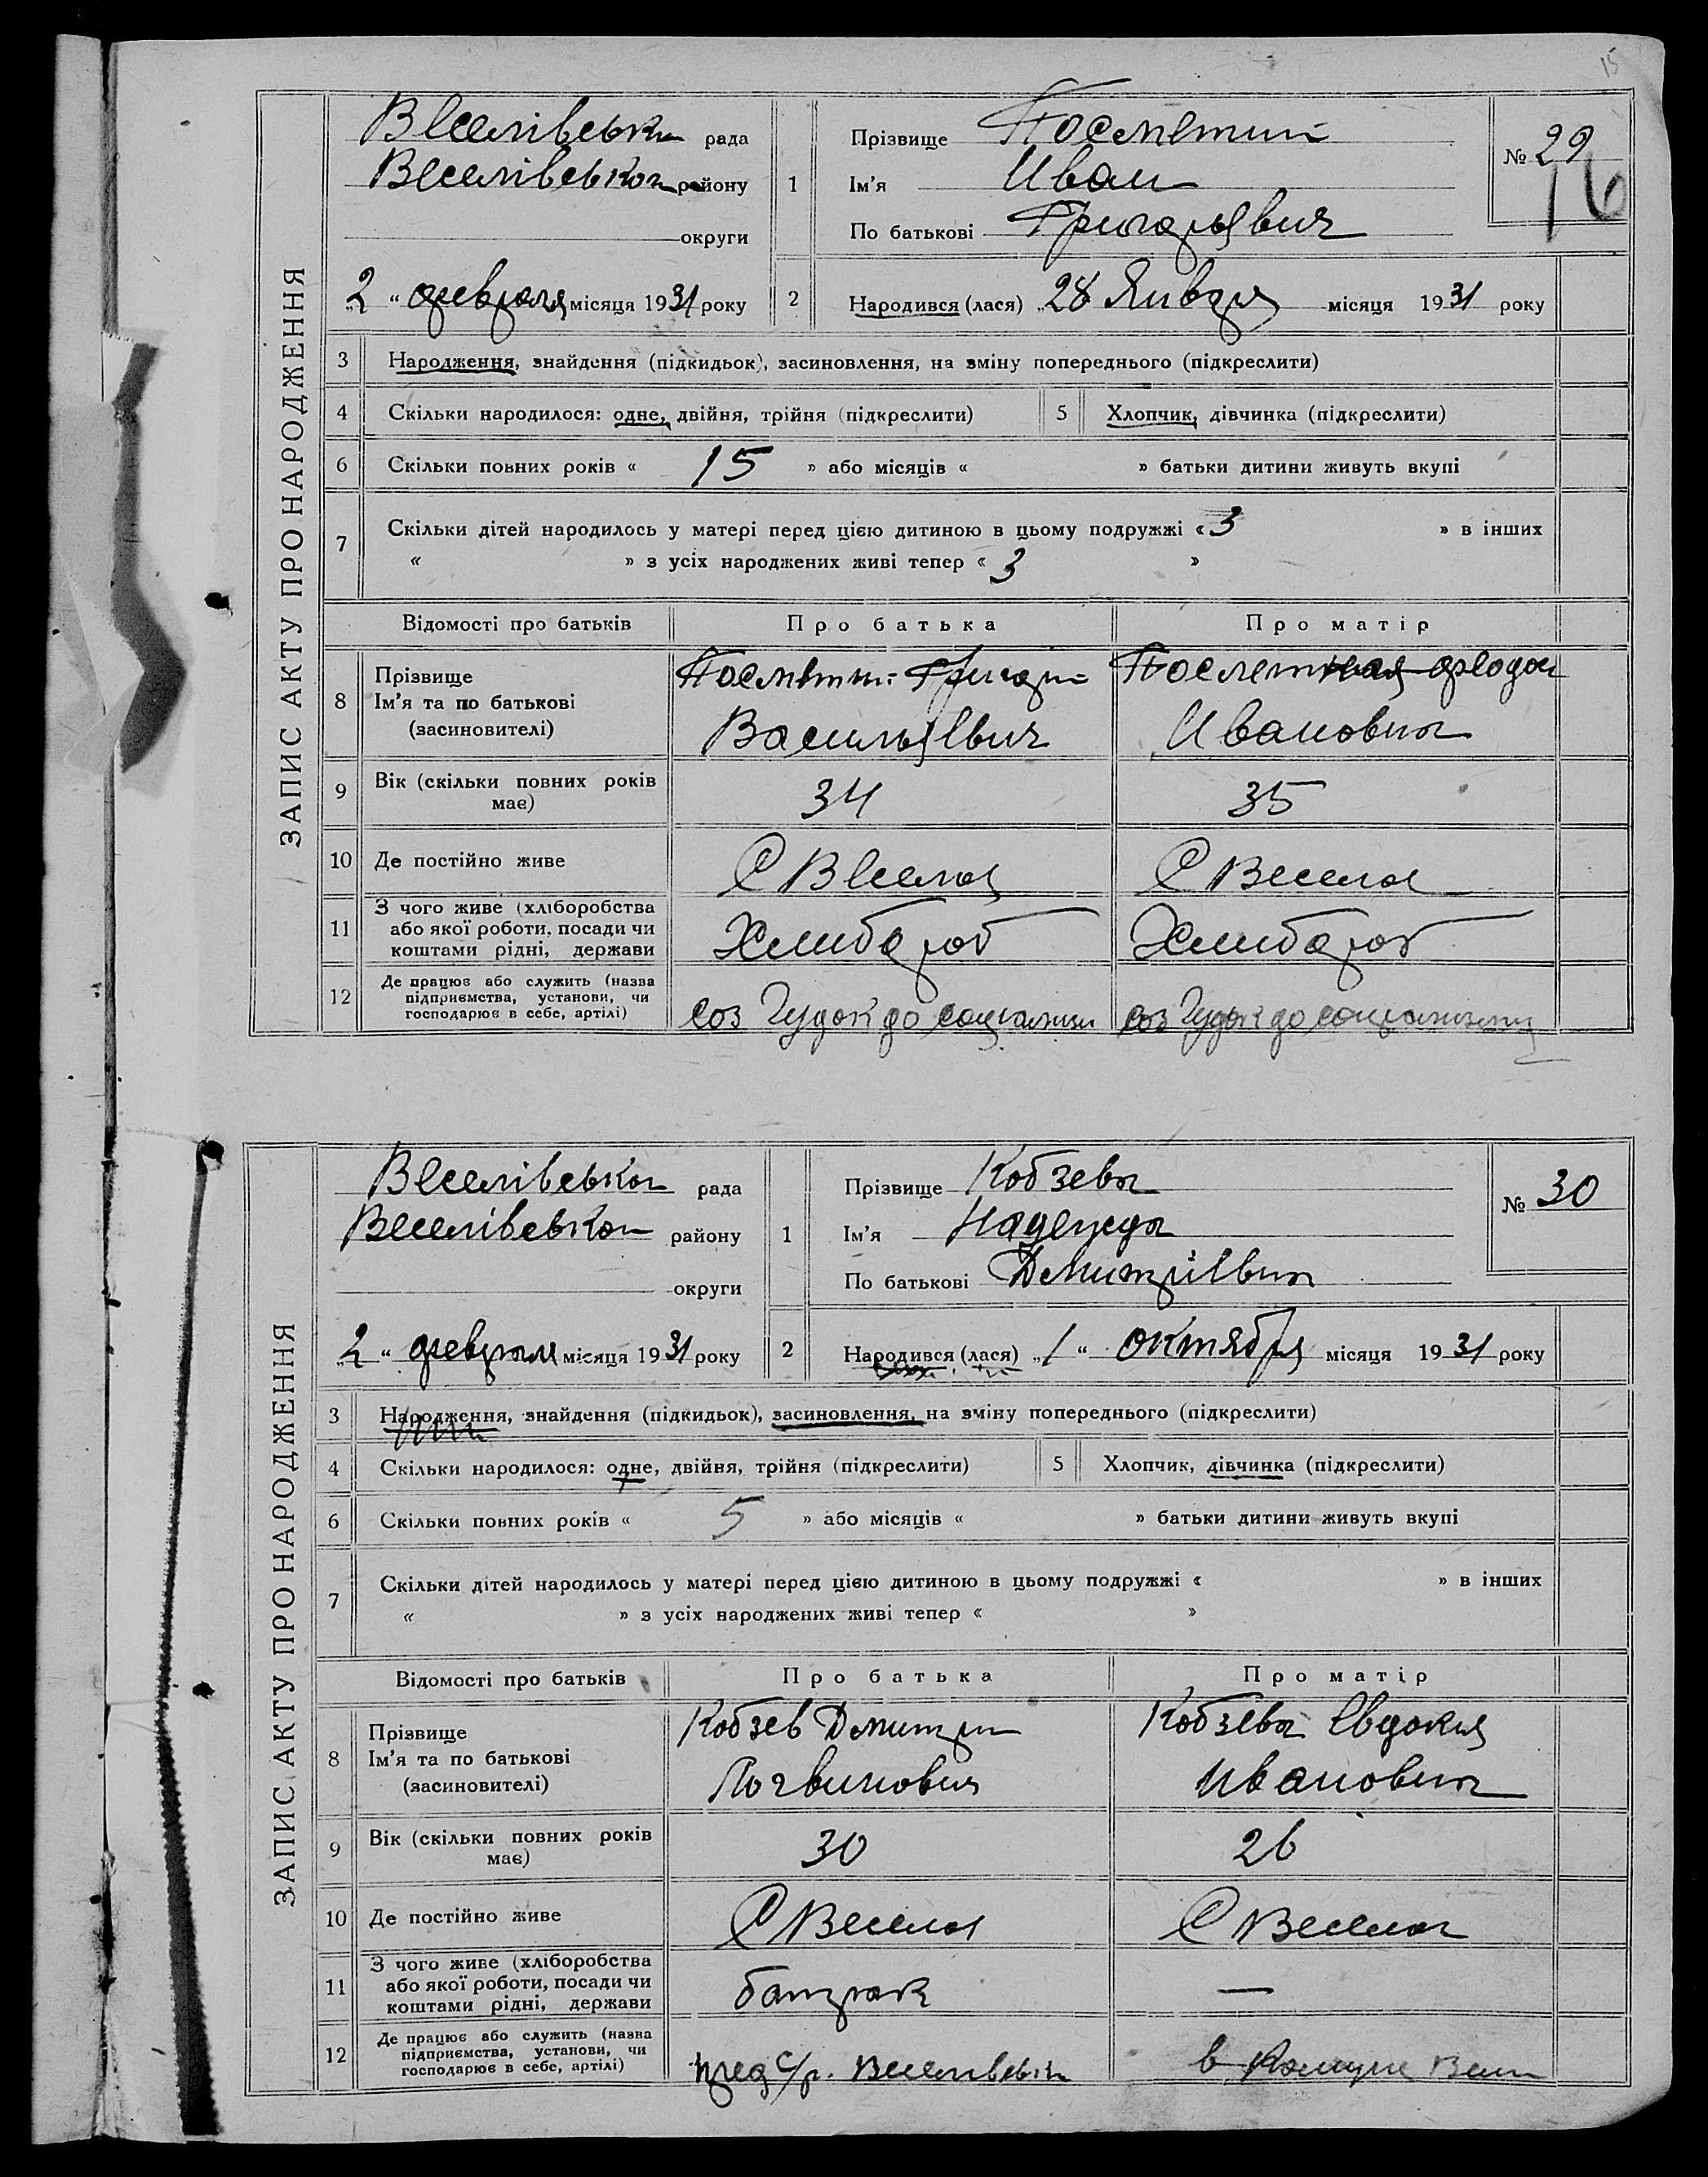 15
ЗАПИС АКТУ ПРО НАРОДЖЕННЯ
Веселівська рада
Веселівского району
округи
„2“ февраля місяця 1931 року
1
Прізвище
Ім'я Иван
По батькові Григорьевич
№ 29
16
2 Народився (лася) „28 Января місяця 1931 року
3 Народження, знайдення (підкидьок), засиновлення, на зміну попереднього (підкреслити)
4 Скільки народилося: одне, двійня, трійня (підкреслити) 5 Хлопчик, дівчинка (підкреслити)
6 Скільки повних років « 15 » або місяців « » батьки дитини живуть вкупі
7 Скільки дітей народилось у матері перед цією дитиною в цьому подружжі « 3 » в інших
« » з усіх народжених живі тепер « 3 »
Відомості про батьків Про батька Про матір
8 Прізвище
Ім'я та по батькові
(засиновителі)
Григорий
Васильевич
Ивановна
9 Вік (скільки повних років має) 34 35
10 Де постійно живе С Веселая С Весела
11 З чого живе (хліборобства
або якої роботи, посади чи
коштами рідні, держави
Хлибороб Хлибороб
12 Де працює або служить (назва
підприємства, установи, чи
господарює в себе, артілі)
Соз Гудок до социализм Соз Гудок до социализму
ЗАПИС АКТУ ПРО НАРОДЖЕННЯ
Веселівська рада
Веселівського району
округи
„2“ февраля місяця 1931 року
1
Прізвище Кобзева
Ім'я Надежда
По батькові Дмитріевна
№ 30
2 Народився (лася) „1“ октября місяця 1931 року
3 Народження, знайдення (підкидьок), засиновлення, на зміну попереднього (підкреслити)
4 Скільки народилося: одне, двійня, трійня (підкреслити) 5 Хлопчик, дівчинка (підкреслити)
6 Скільки повних років « 5 » або місяців « » батьки дитини живуть вкупі
7 Скільки дітей народилось у матері перед цією дитиною в цьому подружжі « » в інших
« » з усіх народжених живі тепер « »
Відомості про батьків Про батька Про матір
8 Прізвище
Ім'я та по батькові
(засиновителі)
Кобзев Дмитри Кобзева Евдокия
Логвинович Ивановна
9 Вік (скільки повних років має) 30 26
10 Де постійно живе С Весела С Весела
11 З чого живе (хліборобства
або якої роботи, посади чи
коштами рідні, держави
батрак —
12 Де працює або служить (назва
підприємства, установи, чи
господарює в себе, артілі)
пред с/р. в Комуне